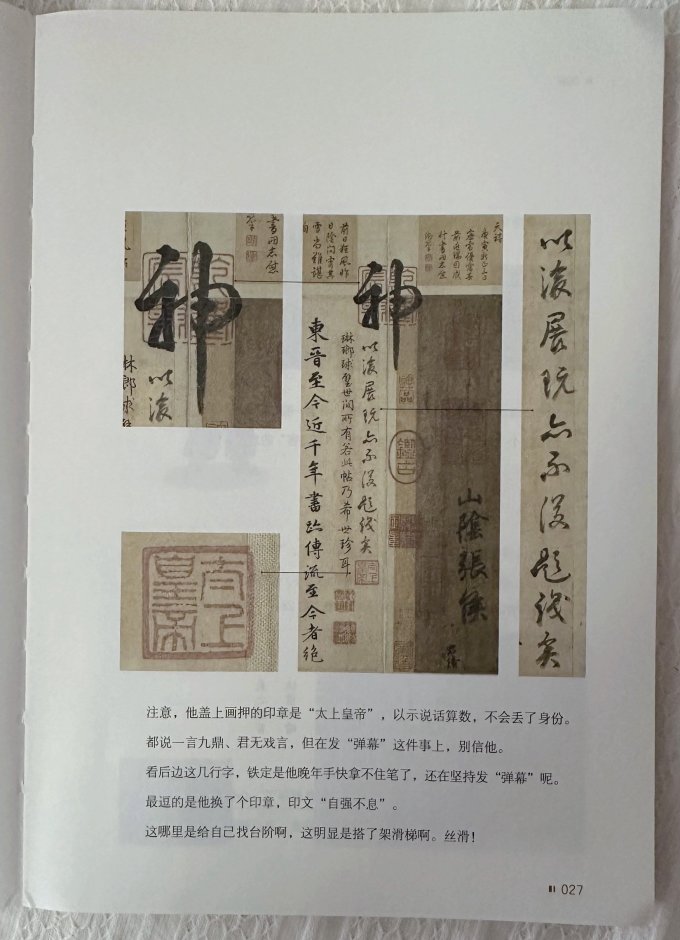 神
以後
神
以後展玩亦不復題識矣
琳瑯球璧世間所有若此帖乃希世珍耳
東晉至今近千年書迹傳流至今者絕
山陰張侯
以後展玩亦不復題識矣
太上皇帝
注意，他盖上画押的印章是“太上皇帝”，以示说话算数，不会丢了身份。
都说一言九鼎、君无戏言，但在发“弹幕”这件事上，别信他。
看后边这几行字，铁定是他晚年手快拿不住笔了，还在坚持发“弹幕”呢。
最逗的是他换了个印章，印文“自强不息”。
这哪里是给自己找台阶啊，这明显是搭了架滑梯啊。丝滑！
027